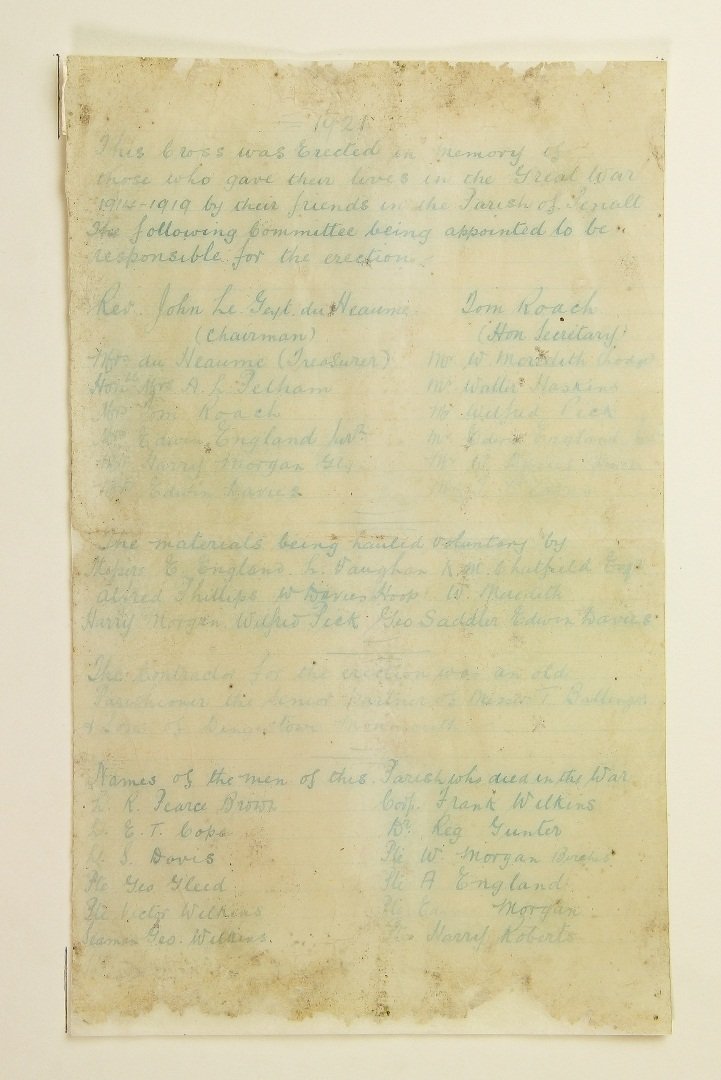 1921
This Cross was Erected in memory of
those who gave their lives in the Great War
1914-1919 by their friends in the Parish of Penallt
The following Committee being appointed to be
responsible for the erection.
Rev. John Le Geyt du Heaume Tom Roach
(Chairman) (Hon Secretary)
Mrs du Heaume (Treasurer) Mr W Meredith
Honble Mrs A. L. Pelham Mr Walter Haskins
Mrs Tom Roach Mr Wilfred Peck
Mr Edwin England Junr Mr Edwin England
Mr Harry Morgan Mr W Davies
Mr Edwin Davies
The materials being hauled voluntary by
Messrs E. England L. Vaughan K. M. Chatfield Esqr
Alfred Phillips W Davies Hoop W. Meredith
Harry Morgan Wilfred Peck Geo Saddler Edwin Davies
The Contractor for the erection was an old
Parishioner the senior partner of Messrs T. Ballinger
& Sons of Dingestow Monmouth
Names of the men of this Parish who died in the War
Lt R. Pearce Brown Corp. Frank Wilkins
Lt E. T. Cope Dr Reg Gunter
Lt S. Davis Pte W. Morgan
Pte Geo Gleed Pte A England
Pte Victor Wilkins Pte Morgan
Seaman Geo. Wilkins Pte Harry Roberts